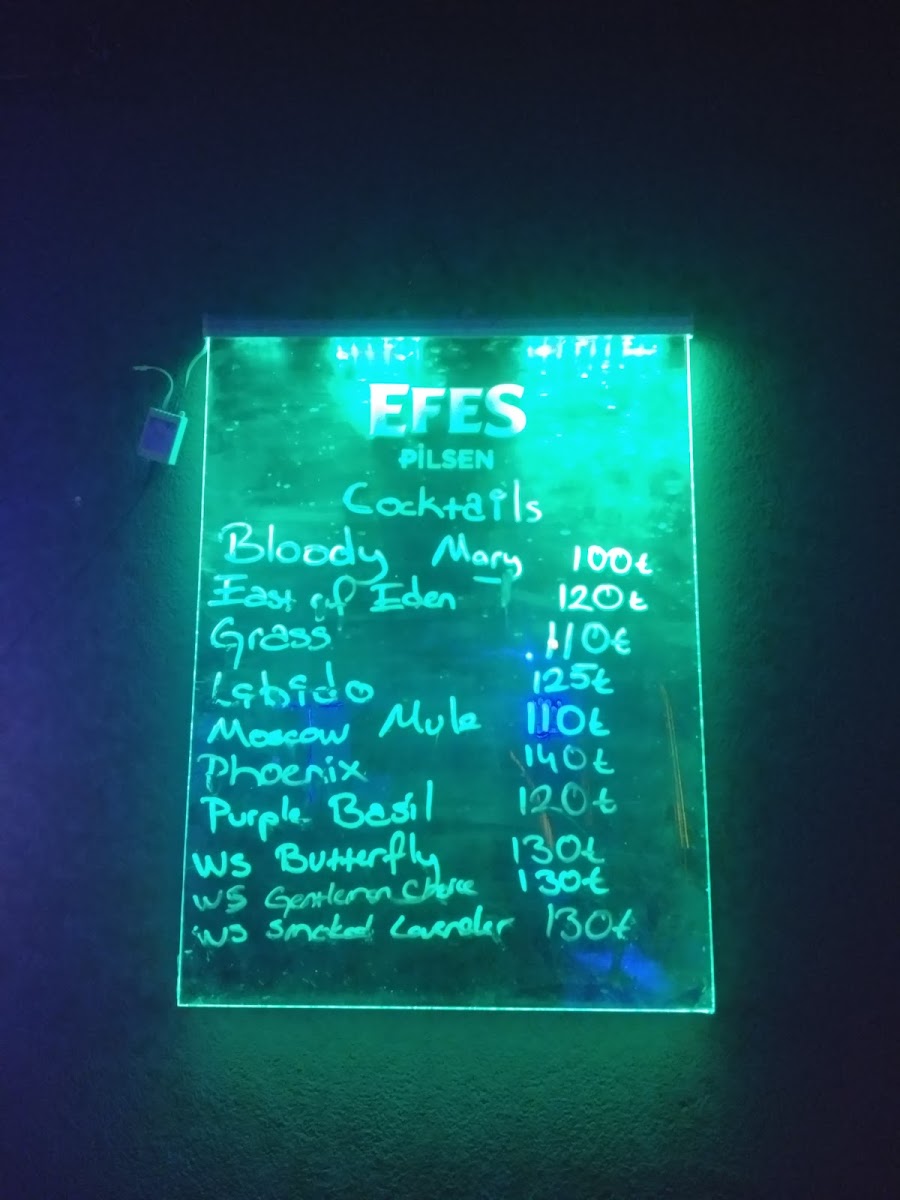 EFES
PİLSEN
Cocktails
Bloody Mary 100₺
East of Eden 120₺
Grass 110₺
Labido 125₺
Moscow Mule 110₺
Phoenix 140₺
Purple Basil 120₺
WS Butterfly 130₺
WS Gentleman Choice 130₺
WS Smoked Lavender 130₺